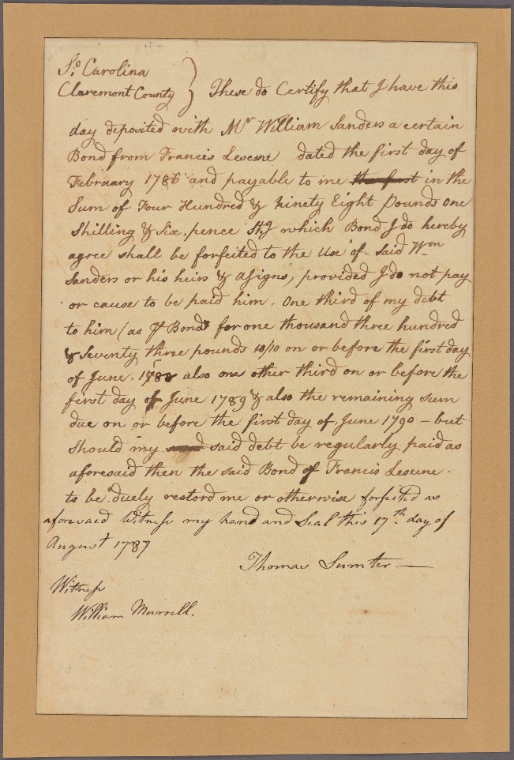 So Carolina
Claremont County } These do Certify that I have this
day deposited with Mr William Sanders a certain
Bond from Francis Lesesne dated the first day of
February 1786 and payable to me the first in the
Sum of Four Hundred & Ninety Eight Pounds one
Shilling & Six pence Stg which Bond I do hereby
agree shall be forfeited to the Use of said Wm
Sanders or his heirs & asigns, provided I do not pay
or cause to be paid him, One third of my debt
to him (as Pr Bond) for one thousand three hundred
& Seventy three pounds 10/10 on or before the first day
of June 1788 also one other third on or before the
first day of June 1789 & also the remaining sum
due on or before the first day of June 1790 – but
should my said debt be regularly paid as
aforesaid then the said Bond of Francis Lesesne
to be duely restord me or otherwise forfeited as
aforesaid Witness my hand and Seal this 17th day of
August 1787
Thomas Sumter
Witness
William Murrell.